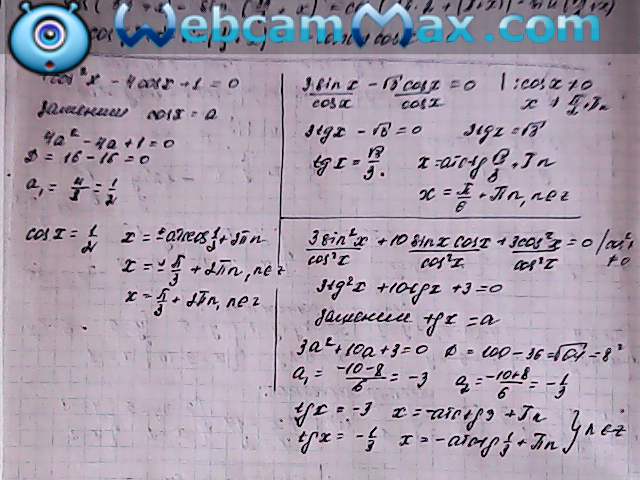 WebcamMax.com
4cos²x - 4cosx + 1 = 0
Заменим cosx = a
4a² - 4a + 1 = 0
D = 16 - 16 = 0
a₁ = 4/8 = 1/2
cosx = 1/2 x = ± arccos 1/2 + 2πn
x = ± π/3 + 2πn, n∈z
x = π/3 + 2πn, n∈z
3sinx/cosx - √3cosx/cosx = 0 | : cosx ≠ 0
x ≠ π/2 + πn
3tgx - √3 = 0 3tgx = √3
tgx = √3/3. x = arctg √3/3 + πn
x = π/6 + πn, n∈z
3sin²x/cos²x + 10sinx cosx/cos²x + 3cos²x/cos²x = 0 /cos² ≠ 0
3tg²x + 10tgx + 3 = 0
Заменим tgx = a
3a² + 10a + 3 = 0 D = 100 - 36 = √64 = 8²
a₁ = -10-8/6 = -3 a₂ = -10+8/6 = -1/3
tgx = -3 x = -arctg3 + πn
tgx = -1/3 x = -arctg 1/3 + πn } n∈z